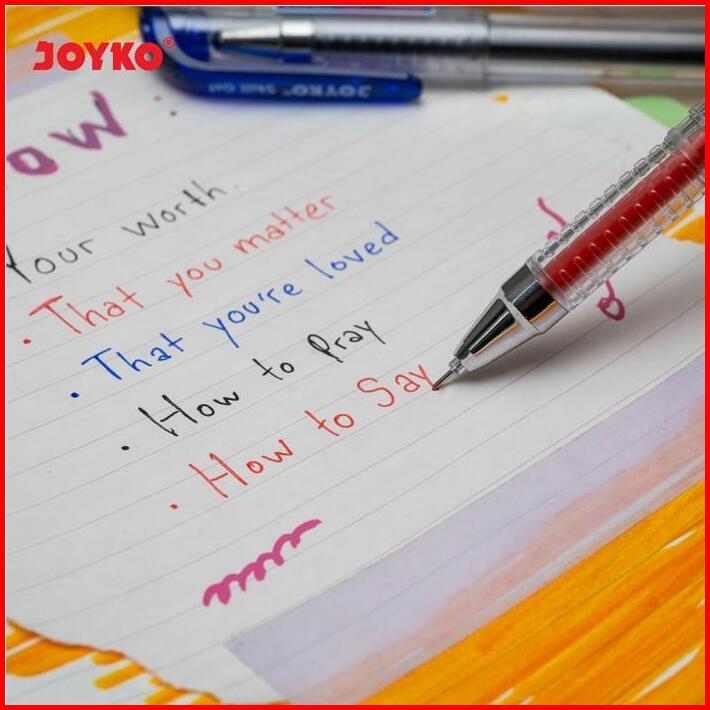 JOYKO®
JOYKO Skill Gel
ow :
Your worth.
• That you matter
• That you're loved
• How to Pray
• How to Say